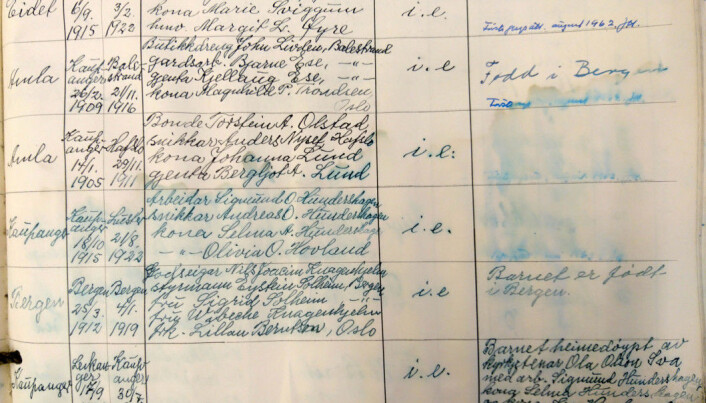 Eidet
6/9.
1915
3/2.
1923
kona Marie Sviggum
Margit L. Øyre
i.e.
august 1962.
Amla
Kaup-
anger
26/2.
1909
Bale-
strand
21/11.
1916
Butikkdreng John Linden, Balestrand
gardsarb. Bjarne Ese, -"-
gjenta Kjellaug Ese, -"-
kona Magnhild P. Trondsen
Oslo
i.e
Fødd i Bergen
Amla
Kaup-
anger
17/1.
1905
Hafslo
29/11.
1911
Bonde Torstein A. Olstad,
snikkar Anders Nyset Hafslo
kona Johanna Lund
gjenta Bergljot A. Lund
i.e.
Kaupanger
Kaup-
anger
18/10
1915
Luster
21/8.
1922
Arbeidar Sigmund O. Hundershagen
snikkar Andreas O. Hundershagen
kona Selma A. Hundershagen
-"- Olivia O. Hovland
i.e.
Bergen
Bergen
25/3.
1912
Bergen
4/1.
1919
Godseigar Nils Joacim Knagenhjelm
styrmann Eystein Solheim, Bergen
fru Sigrid Solheim -"-
fru Wibeche Knagenhjelm
frk. Lillan Berntsen, Oslo
i.e
Barnet er født
i Bergen.
Kaupanger
17/9
Kaup-
anger
30/7.
i.e.
Barnet heimedøypt av
kyrkjetenar Ola Olson Sva
med arb. Sigmund Hundershagen
kona Selma Hundershagen